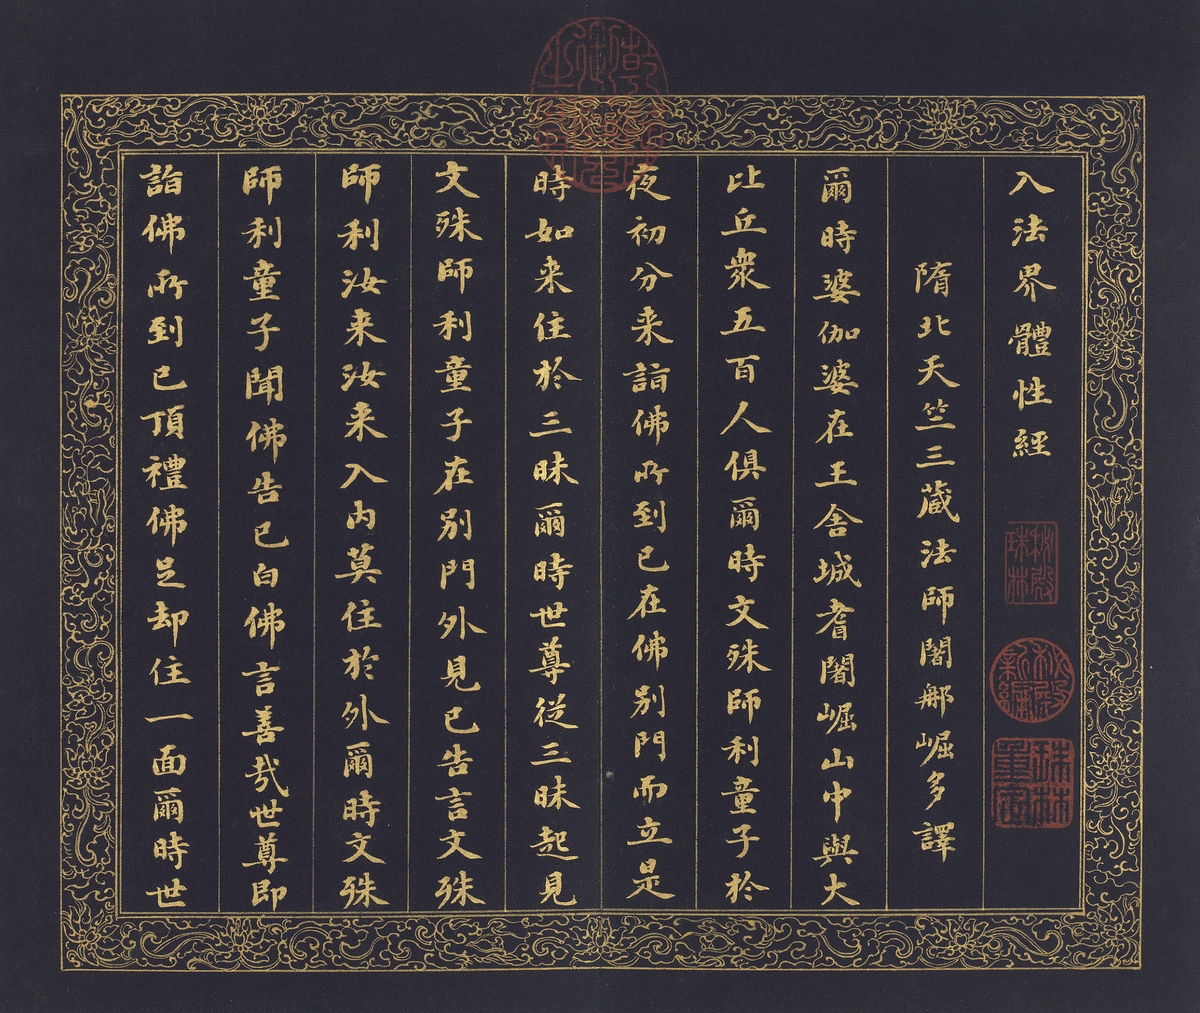 乾隆御覽之寶
入法界體性經
秘殿珠林
秘殿新編
珠林重定
隋北天竺三藏法師闍那崛多譯
爾時婆伽婆在王舍城耆闍崛山中與大
比丘衆五百人俱爾時文殊師利童子於
夜初分来詣佛所到已在佛別門而立是
時如来住於三昧爾時世尊從三昧起見
文殊師利童子在別門外見已告言文殊
師利汝来汝来入内莫住於外爾時文殊
師利童子聞佛告已白佛言善哉世尊即
詣佛所到已頂禮佛足却住一面爾時世